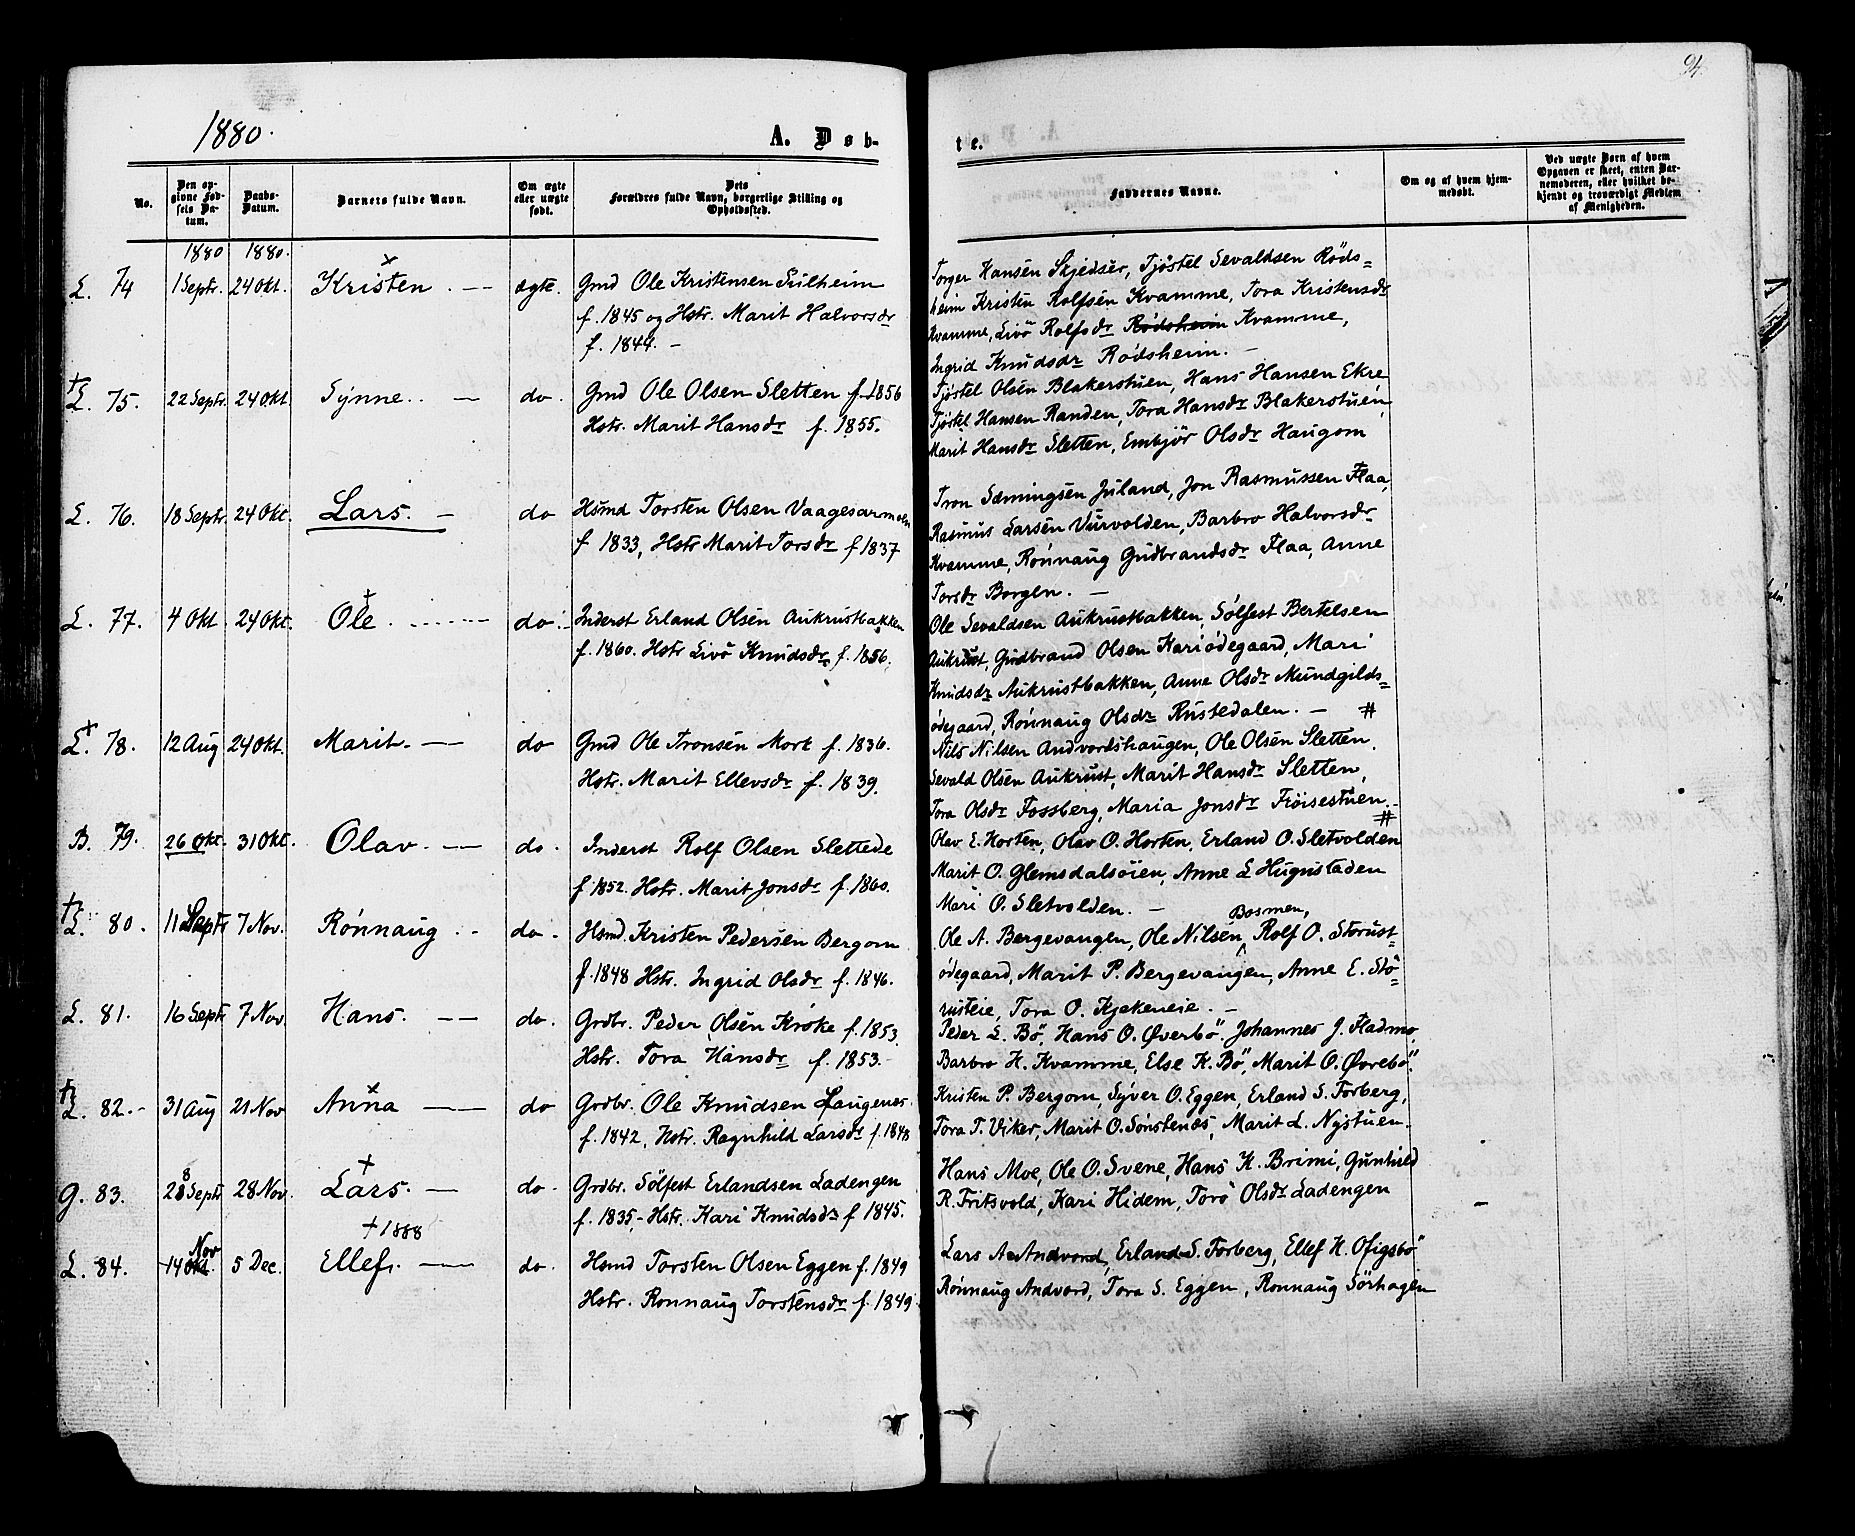 94.
1880.
A. Døb-
te.
No.
Den opgivne Fødsels Datum.
Daabs-Datum.
Barnets fulde Navn.
Om ægte eller uægte født.
Dets Forældres fulde Navn, borgerlige Stilling og Opholdssted.
Faddernes Navne.
Om og af hvem hjemmedøbt.
Ved uægte Børn af hvem Opgaven er skeet, enten Barnemoderen, eller hvilket bekjendt og troværdigt Medlem af Menigheden.
1880 1880.
L. 74 1 Septr. 24 Okt. Kristen ægte. Gmd Ole Kristensen Sulheim
f. 1845 og Hstr. Marit Halvorsdr
f. 1844. -
Torger Hansen Skjedsér, Tjöstel Sevaldsen Röds=
heim Kristen Rolfsen Kvamme, Tora Kristensdr
Kvamme, Livö Rolfsdr Rödsheim Kvamme,
Ingrid Knudsdr Rödsheim. -
† L. 75. 22 Septr. 24 Okt. Synne do. Gmd Ole Olsen Sletten f. 1856
Hstr. Marit Hansdr f. 1855.
Tjöstel Olsen Blakerstuen, Hans Hansen Ekre
Tjöstel Hansen Randen, Tora Hansdr Blakerstuen,
Marit Hansdr Sletten, Embjör Olsdr Haugom
L. 76. 18 Septr. 24 Okt. Lars. do Hsmd Torsten Olsen Vaagesarmoen
f 1833, Hstr Marit Torsdr f 1837
Tron Sæmingsen Juland, Jon Rasmussen Flaa,
Rasmus Larsen Vurvolden, Barbro Halvorsdr
Kvamme, Rönnaug Gudbrandsdr Flaa, Anne
Torsdr Borgen. -
L. 77. 4 Okt 24 Okt. Ole do Inderst Erland Olsen Aukrustbakken
f. 1860. Hstr Livö Knudsdr f. 1856.
Ole Sevaldsen Aukrustbakken, Sölfest Bertelsen
Aukrust, Gudbrand Olsen Kariödegaard, Mari
Knudsdr Aukrustbakken, Anne Olsdr Mundgilds=
ödegaard, Rönnaug Olsdr Rustedalen. - #
† L. 78. 12 Aug 24 Okt. Marit do Gmd Ole Tronsen Mork f. 1836.
Hstr. Marit Ellevsdr f. 1839.
Nils Nilsen Andvordshaugen, Ole Olsen Sletten.
Sevald Olsen Aukrust, Marit Hansdr Sletten,
Tora Olsdr Fossberg, Maria Jonsdr Flöisestuen. #
B. 79. 26 Okt. 31 Okt. Olav do. Inderst Rolf Olsen Slettede
f 1852. Hstr. Marit Jonsdr f. 1860.
Olav E. Horten, Olav O. Horten, Erland O. Sletvolden
Marit O. Glemsdalsöien, Anne L Hugnstaden
Mari O. Sletvolden. -
† L. 80. 11 Septr 7 Nov. Rönnaug do. Hsmd. Kristen Pedersen Bergom
f. 1848 Hstr. Ingrid Olsdr f. 1846.
Bosmen,
Ole A. Bergevangen, Ole Nilsen, Rolf O. Storust=
ödegaard, Marit P. Bergevangen, Anne E. Stö=
rusteie, Tora O. Kjekeneie. -
L. 81. 16 Septr 7 Nov. Hans. do. Grdbr. Peder Olsen Kröke f. 1853.
Hstr. Tora Hansdr f. 1853.
Peder L. Bö, Hans O. Øverbö. Johannes J. Fladmo,
Barbro H. Kvamme, Else K. Bö, Marit O. Øvrebö.
† L. 82. 31 Aug 21 Nov Anna do Grdbr. Ole Knudsen Haugenes
f. 1842, Hstr. Ragnhild Larsdr f. 1848
Kristen P. Bergom, Syver O. Eggen, Erland S. Forberg,
Tora T. Viker, Marit O. Sönstenæs, Marit L. Nystuen.
G. 83. 28 Septr 28 Nov. Lars. do. Grdbr. Sölfest Erlandsen Ladengen
f. 1835. - Hstr. Kari Knudsdr f 1845.
Hans Moe, Ole O. Svene, Hans K. Brimi, Gunhild
R. Fritsvold, Kari Hidem, Torö Olsdr Ladengen
† 1888
L. 84. 14 Okt. Nov 5 Dec. Ellef. do. Hsmd Torsten Olsen Eggen f. 1849
Hstr. Ronnaug Torstensdr f. 1849.
Lars A Andvord, Erland S. Forberg, Ellef H. Ofigsbö
Rönnaug Andvord, Tora S. Eggen, Ronnaug Sörhagen